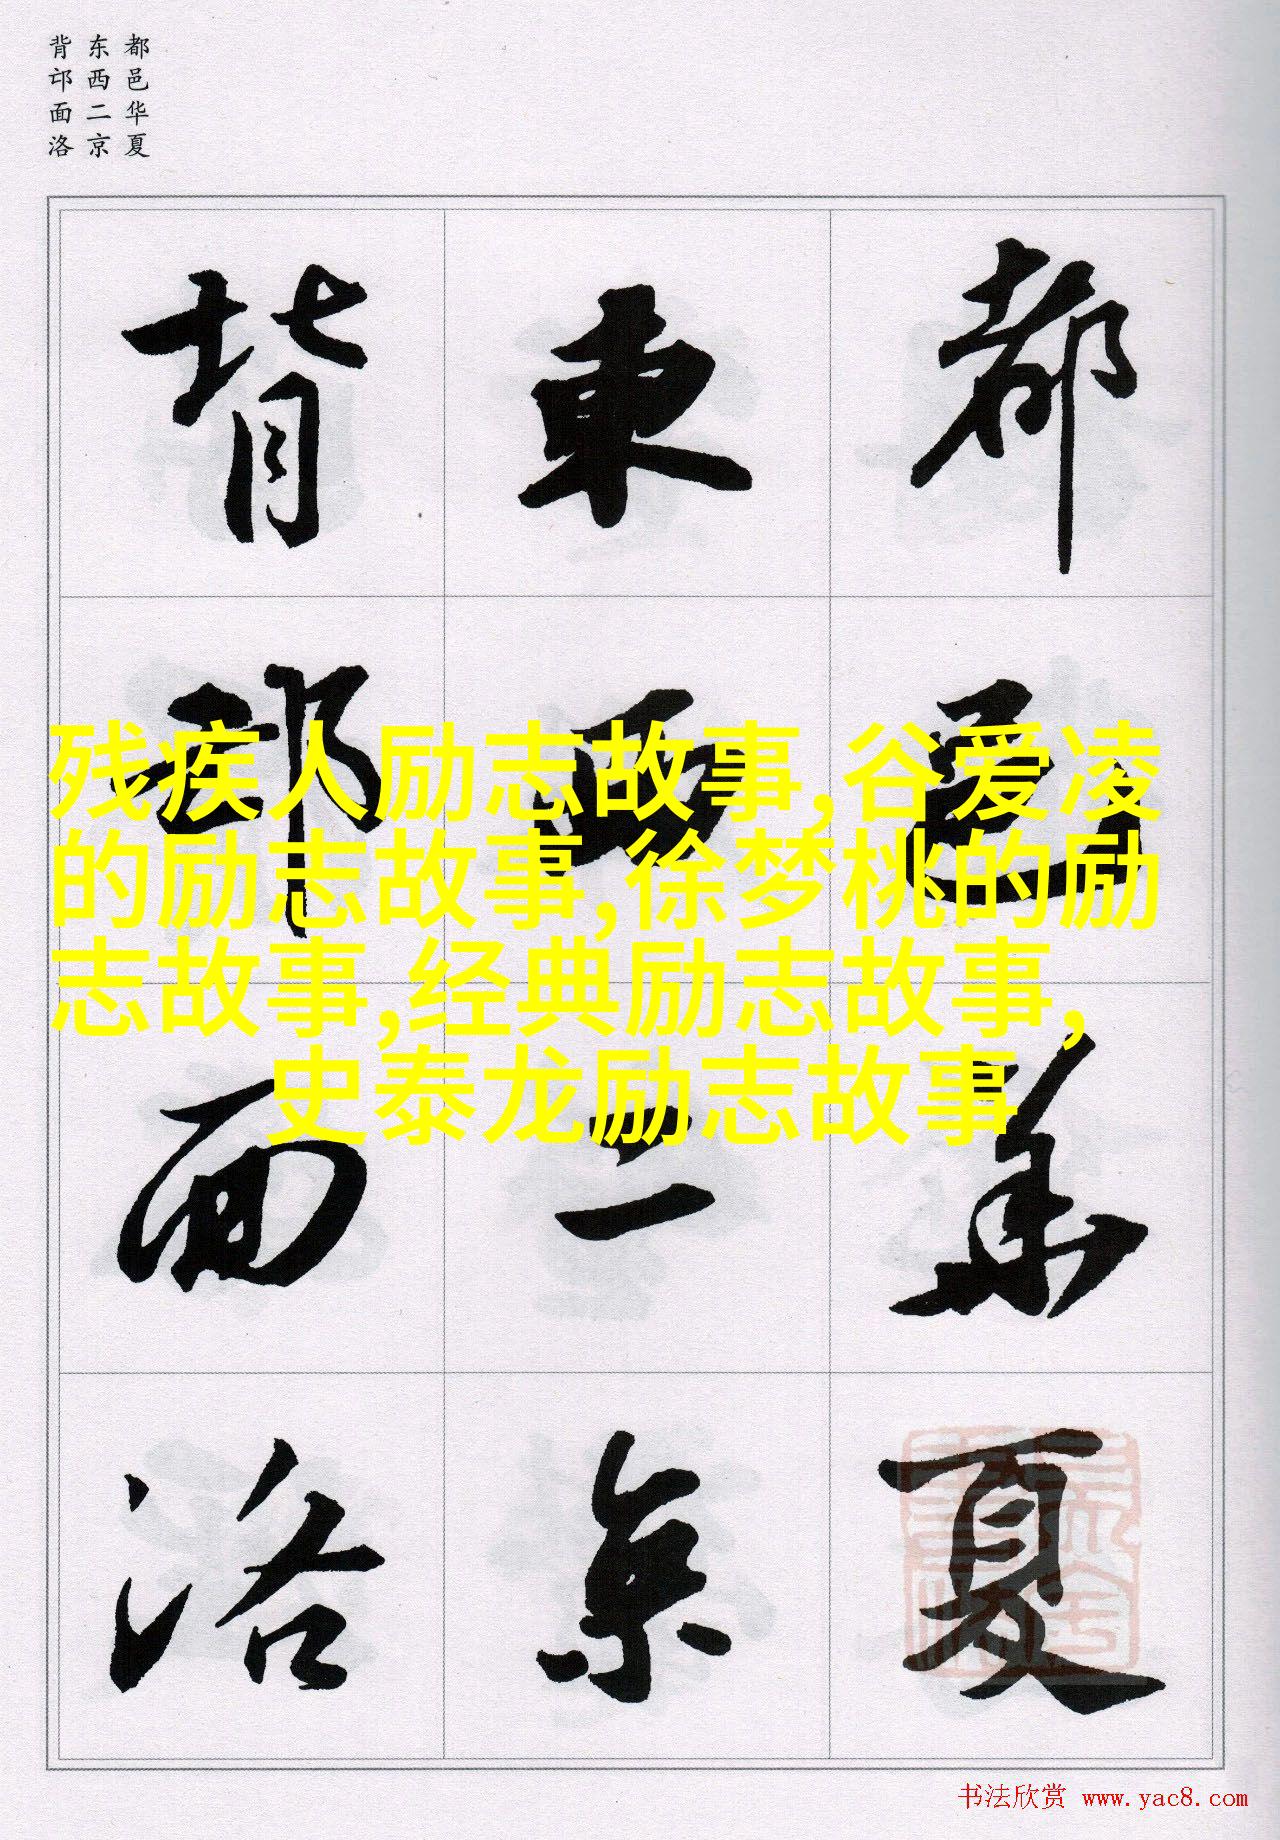 都邑华夏
东西二京
背邙面洛
都
邑
華
夏
東
西
二
京
背
邙
面
洛
残疾人励志故事,谷爱凌
的励志故事,徐梦桃的励
志故事,经典励志故事,
史泰龙励志故事
书法欣赏 www.yac8.com